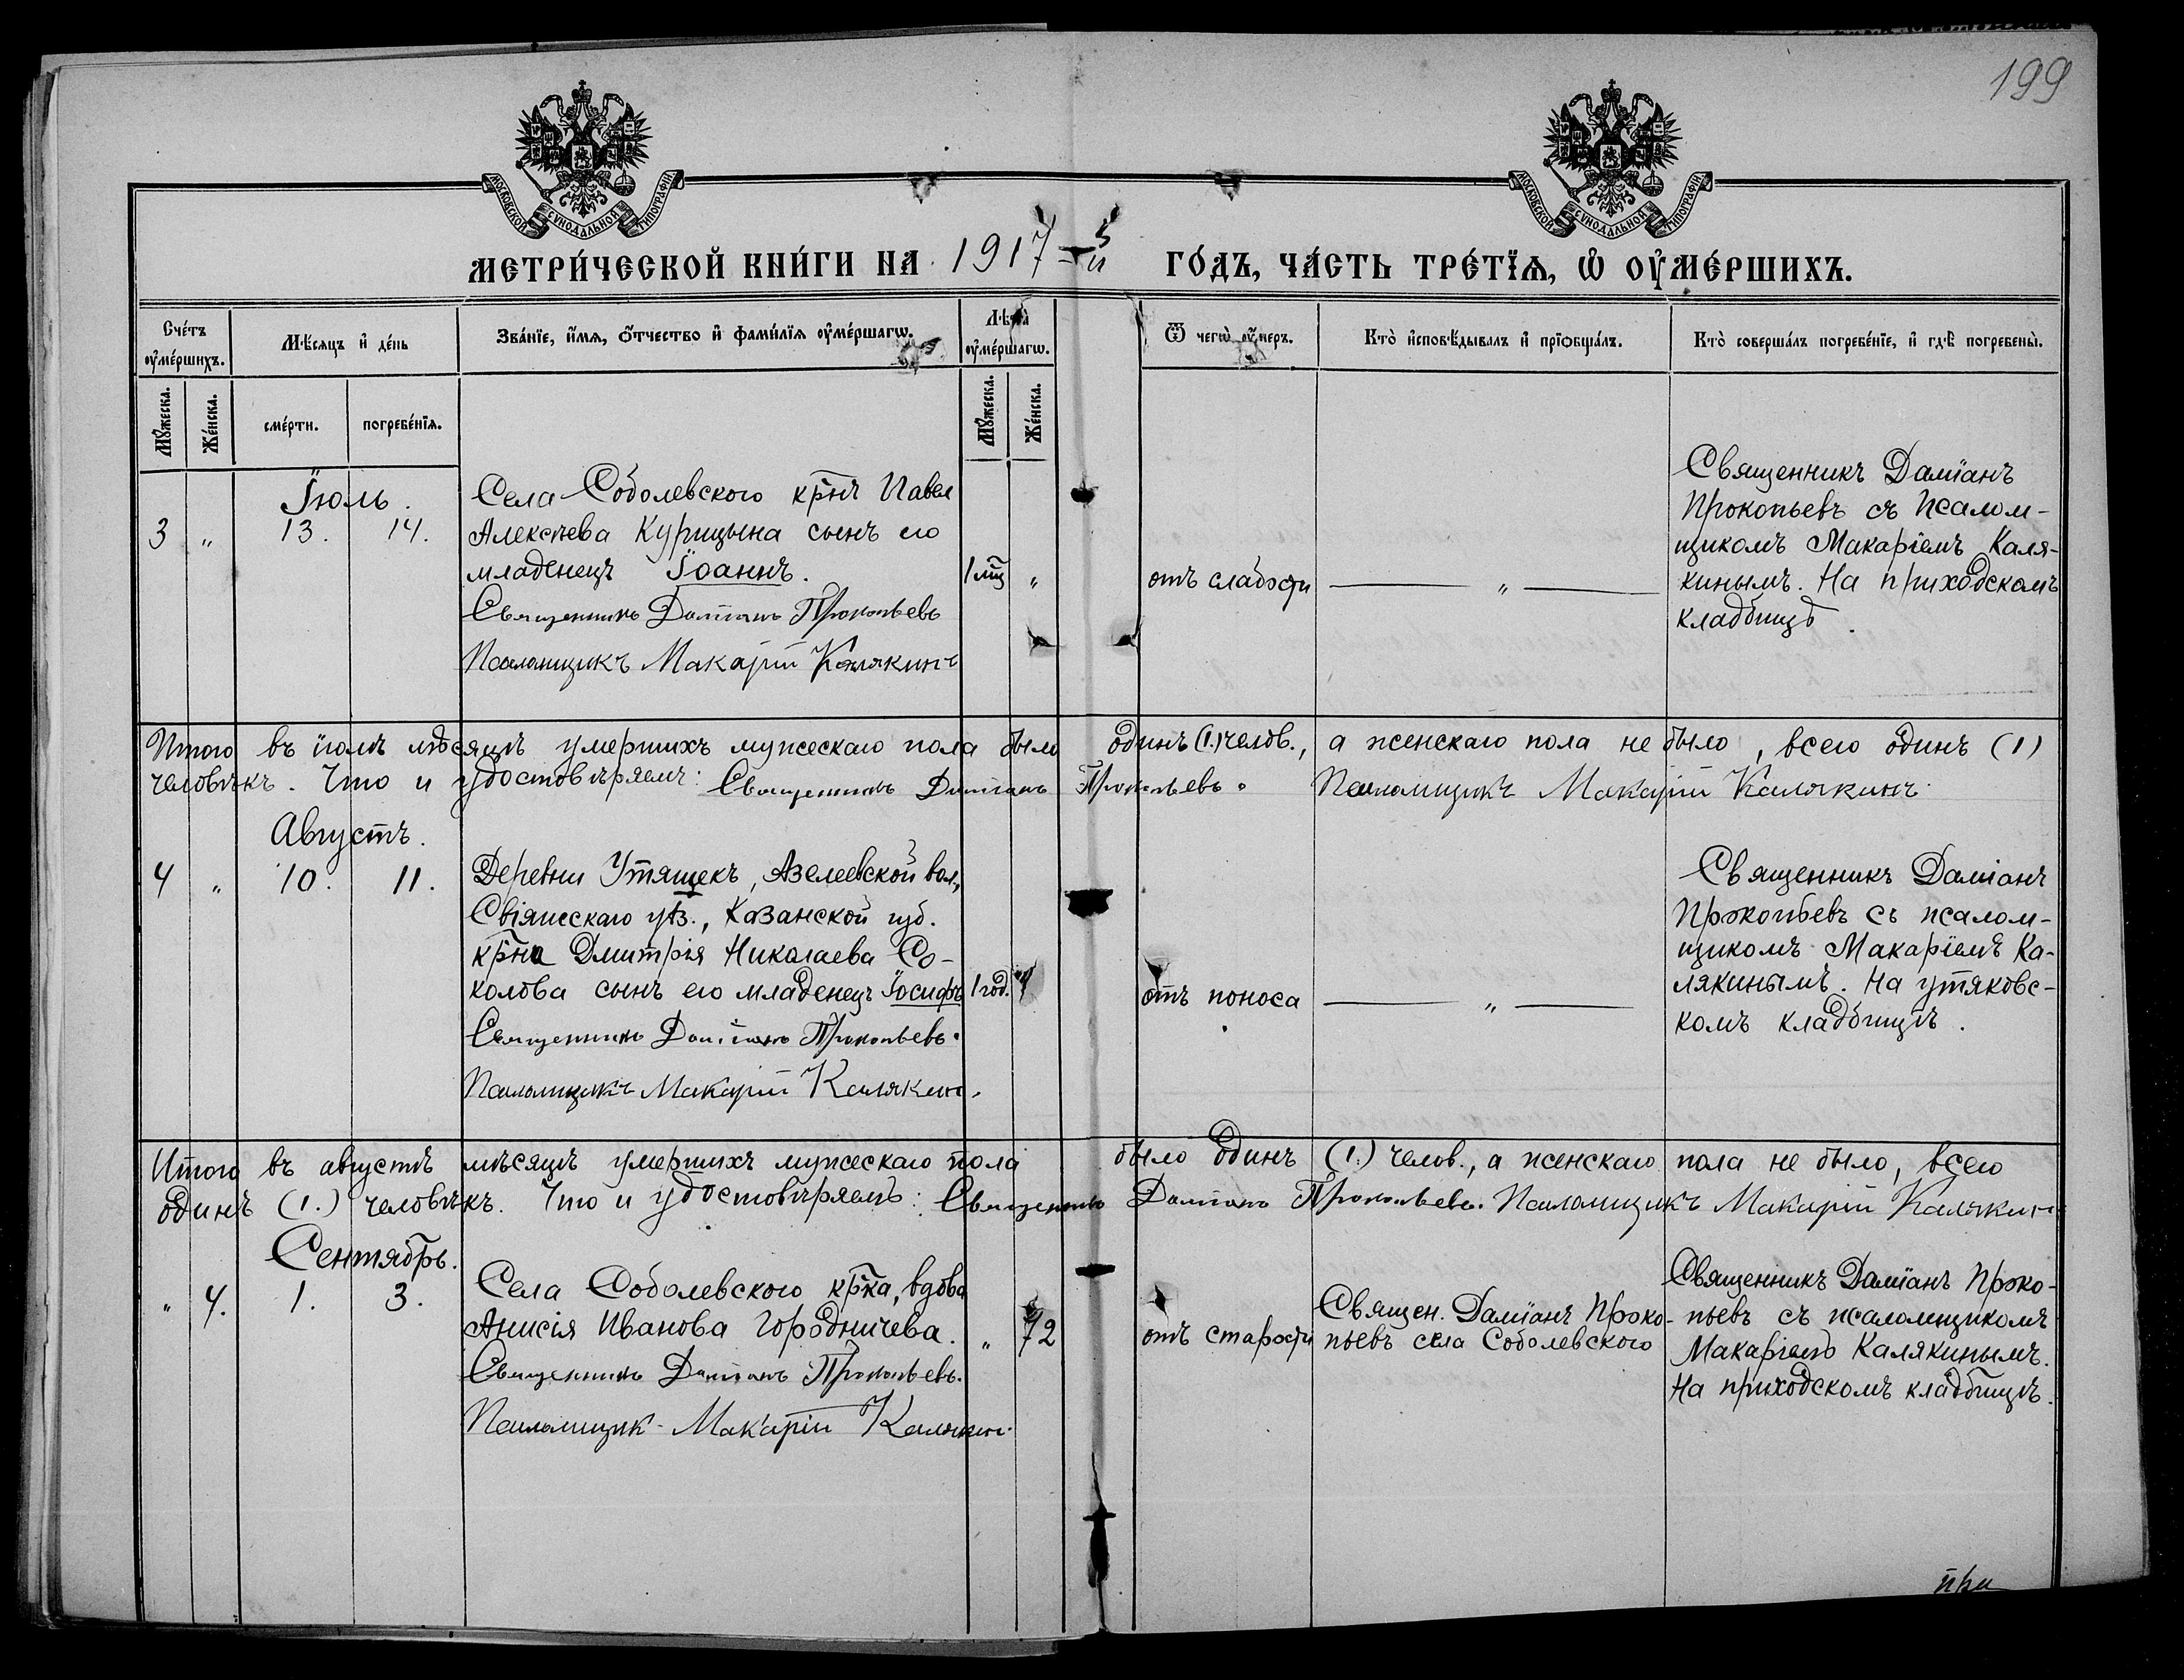 199
МОСКОВСКОЙ СѴНОДАЛЬНОЙ ТИПОГРАФІИ
МОСКОВСКОЙ СѴНОДАЛЬНОЙ ТИПОГРАФІИ
МЕТРИ́ЧЕСКОЙ КНИ́ГИ НА 1917-й ГО́ДЪ, ЧА́СТЬ ТРЕ́ТЇѦ, Ѡ҆ ОУ҆МЕ́РШИХЪ.
Сче́тъ оу҆ме́ршихъ.
Мѣ́сяцъ и҆ де́нь
Зва́нїе, и҆́мѧ, ѻ҆́тчество и҆ фами́лїѧ оу҆ме́ршагѡ.
Лѣта̀ оу҆ме́ршагѡ.
Ѿ чегѡ̀ оу҆́меръ.
Кто̀ и҆сповѣ́дывалъ и҆ прїѻбща́лъ.
Кто̀ соверша́лъ погребе́нїе, и҆ гдѣ̀ погребены̀.
Мꙋ́жеска.
Же́нска.
сме́рти.
погребе́нїѧ.
Мꙋ́жеска.
Же́нска.
Іюль.
3 " 13. 14.
Села Соболевского крнъ Павел
Алексѣева Курицына сынъ его
младенецъ Іоаннъ.
1 мц "
Священникъ Даміанъ Прокопьевъ
Псаломщикъ Макарій Калякинъ
отъ слабости
"
Священникъ Даміанъ
Прокопьевъ съ Псалом-
щикомъ Макаріемъ Каля-
кинымъ. На приходскомъ
кладбищѣ.
Итого въ іюлѣ мѣсяцѣ умершихъ мужескаго пола было одинъ (1.) челов., а женскаго пола не было, всего одинъ (1)
человѣкъ. Что и удостовѣряемъ: Священникъ Даміанъ Прокопьевъ. Псаломщикъ Макарій Калякинъ
Августъ.
4 " 10. 11.
Деревни Утящекъ, Азелеевской вол.,
Свіяжскаго уѣз., Казанской губ.
крна Дмитрія Николаева Со-
колова сынъ его младенецъ Іосифъ
1 год. "
Священникъ Даміанъ Прокопьевъ.
Псаломщикъ Макарій Калякин.
отъ поноса
"
Священникъ Даміанъ
Прокопьевъ съ псалом-
щикомъ Макаріемъ Ка-
лякинымъ. На утяковс-
комъ кладбищѣ.
Итого въ августѣ мѣсяцѣ умершихъ мужескаго пола было одинъ (1.) челов., а женскаго пола не было, всего
одинъ (1.) человѣкъ. Что и удостовѣряемъ: Священникъ Даміанъ Прокопьевъ. Псаломщикъ Макарій Калякин
Сентябрь.
" 4. 1. 3.
Села Соболевского крка, вдова
Анисія Иванова Городничева.
" 72
Священникъ Даміанъ Прокопьевъ.
Псаломщик Макарій Калякин.
отъ старости
Священ. Даміанъ Проко-
пьевъ села Соболевского
Священникъ Даміанъ Проко-
пьевъ съ псаломщикомъ
Макаріемъ Калякинымъ.
На приходскомъ кладбищѣ.
при